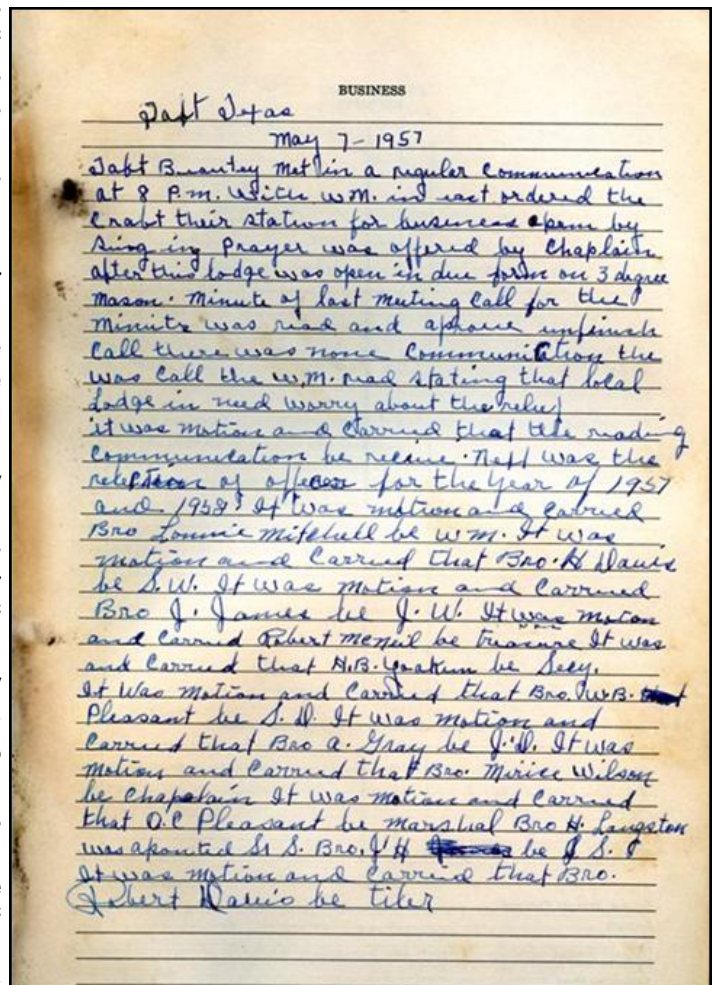 BUSINESS
Taft Texas
May 7-1957
Taft Brantley Met in a regular Communication
at 8 P.m. With W.M. in east ordered the
Craft their station for business open by
Sing in Prayer was offered by Chaplain
after this lodge was open in due form on 3 degree
Mason. Minute of last meeting Call for the
Minute was read and aprove unfinish
Call there was none Communication the
was Call the W.M. read stating that local
Lodge in need worry about the relief
it was motion and Carried that the reading
Communication be receive. Neft was the
of officer for the year of 1957
and 1958. It was motion and carried
Bro Lonnie Mitchell be W.M. It was
motion and Carried that Bro. H Davis
be S.W. It was motion and Carrried
Bro J. James be J.W. It was moton
and Carried Robert McNeil be treasure It was
and Carried that H.B. Yoakum be Secy.
It Was Motion and Carried that Bro. W.B.
Pleasant be S.D. It was motion and
Carried that Bro a. Gray be J.D. It was
motion and Carried that Bro. Wilson
be Chaplain It was motion and Carried
that O.C Pleasant be marshal Bro H. Langston
was aponted Sr S. Bro. J H be J. S.
It was motion and Carried that Bro.
Robert Davis be tiler